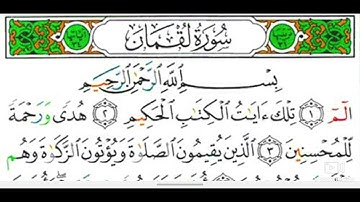 سُورَةُ لُقْمَان
بِسْمِ ٱللَّهِ ٱلرَّحْمَٰنِ ٱلرَّحِيمِ
الٓمٓ ١ تِلْكَ ءَايَٰتُ ٱلْكِتَٰبِ ٱلْحَكِيمِ ٢ هُدًى وَرَحْمَةً
لِّلْمُحْسِنِينَ ٣ ٱلَّذِينَ يُقِيمُونَ ٱلصَّلَوٰةَ وَيُؤْتُونَ ٱلزَّكَوٰةَ وَهُم